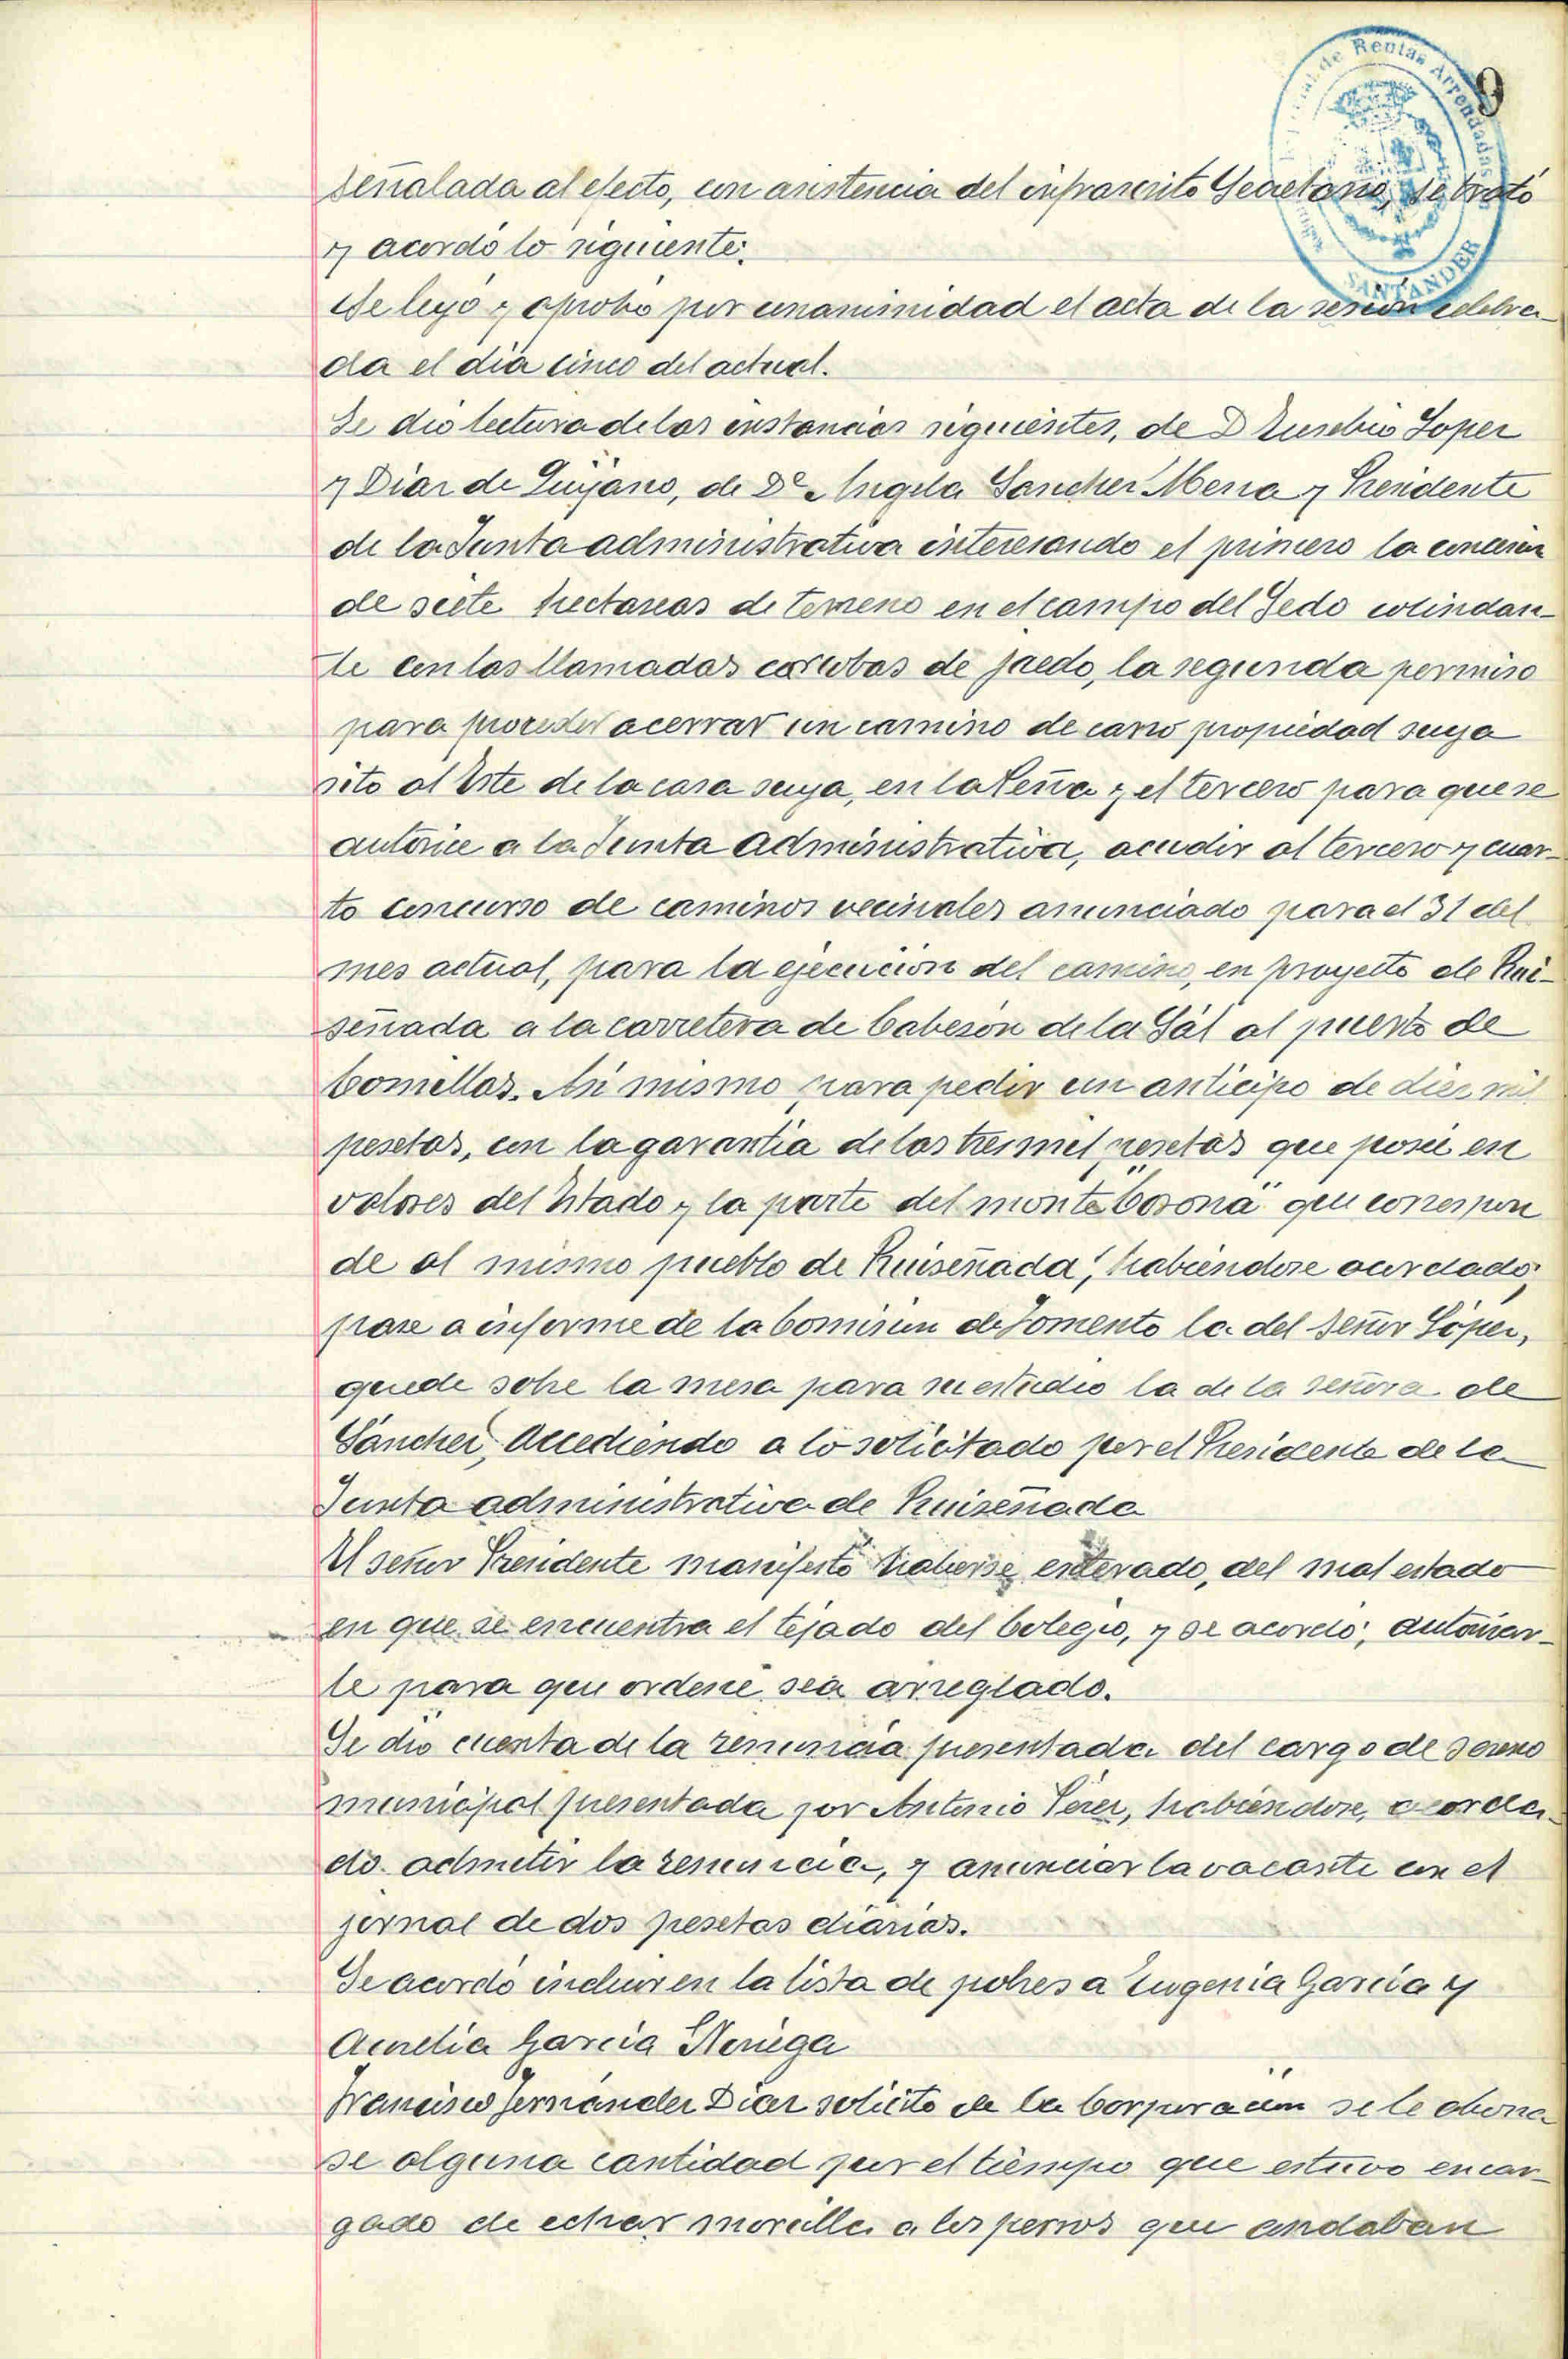 9
de Rentas Arrendadas
SANTANDER
señalada al efecto, con asistencia del infrascrito Secretario, se trató
y acordó lo siguiente:
Se leyó y aprobó por unanimidad el acta de la sesión celebra-
da el día cinco del actual.
Se dió lectura de las instancias siguientes, de D Eusebio Lopez
y Diaz de Quijano, de Dª Angela Sanchez Mesa y Presidente
de la Junta administrativa interesando el primero la concesión
de siete hectareas de terreno en el campo del Jedo colindan-
te con las llamadas corcobas de jaedo, la segunda permiso
para proceder a cerrar un camino de carro propiedad suya
sito al Este de la casa suya, en la Peña y el tercero para que se
autorice a la Junta administrativa, acudir al tercero y cuar-
to concurso de caminos vecinales anunciado para el 31 del
mes actual, para la ejecución del camino, en proyecto de Rui-
señada a la carretera de Cabezón de la Sál al puerto de
Comillas. Asi mismo para pedir un anticipo de diez mil
pesetas, con la garantía de las tres mil pesetas que poseé en
valores del Estado y la parte del monte "Corona" que correspon
de al mismo pueblo de Ruiseñada, habiendose acordado;
pase a informe de la Comisión de Fomento la del Señor López,
quede sobre la mesa para su estudio la de la señora de
Sánchez, accediendo a lo solicitado por el Presidente de la
Junta administrativa de Ruiseñada
El señor Presidente manifestó haberse enterado, del mal estado
en que se encuentra el tejado del Colegio, y se acordó, autorizar-
le para que ordene sea arreglado.
Se dió cuenta de la renuncia presentada del cargo de sereno
municipal presentada por Antonio Pérez, habiendose, acorda-
do admitir la renuncia, y anunciar la vacante con el
jornal de dos pesetas diarias.
Se acordó incluir en la lista de pobres a Eugenia García y
Amelia García Noriega
Francisco Fernández Díaz solicitó de la Corporación se le abona
se alguna cantidad por el tiempo que estuvo encar-
gado de echar morcilla a los perros que andaban